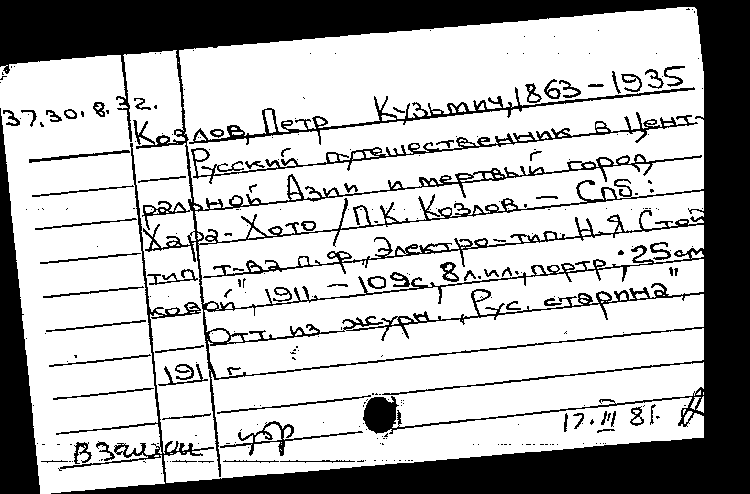 37.30.8.32.
Козлов, Петр Кузьмич, 1863-1935
Русский путешественник в Цент-
ральной Азии и мертвый город
Хара-Хото / П.К. Козлов. — Спб.:
тип. т-ва п. ф. „Электро-тип. Н.Я Стой
ковой", 1911. — 109с., 8 л.ил., портр.; 25см
Отт. из журн.: „Рус. старина",
1911 г.
Взамен
17.III 81.